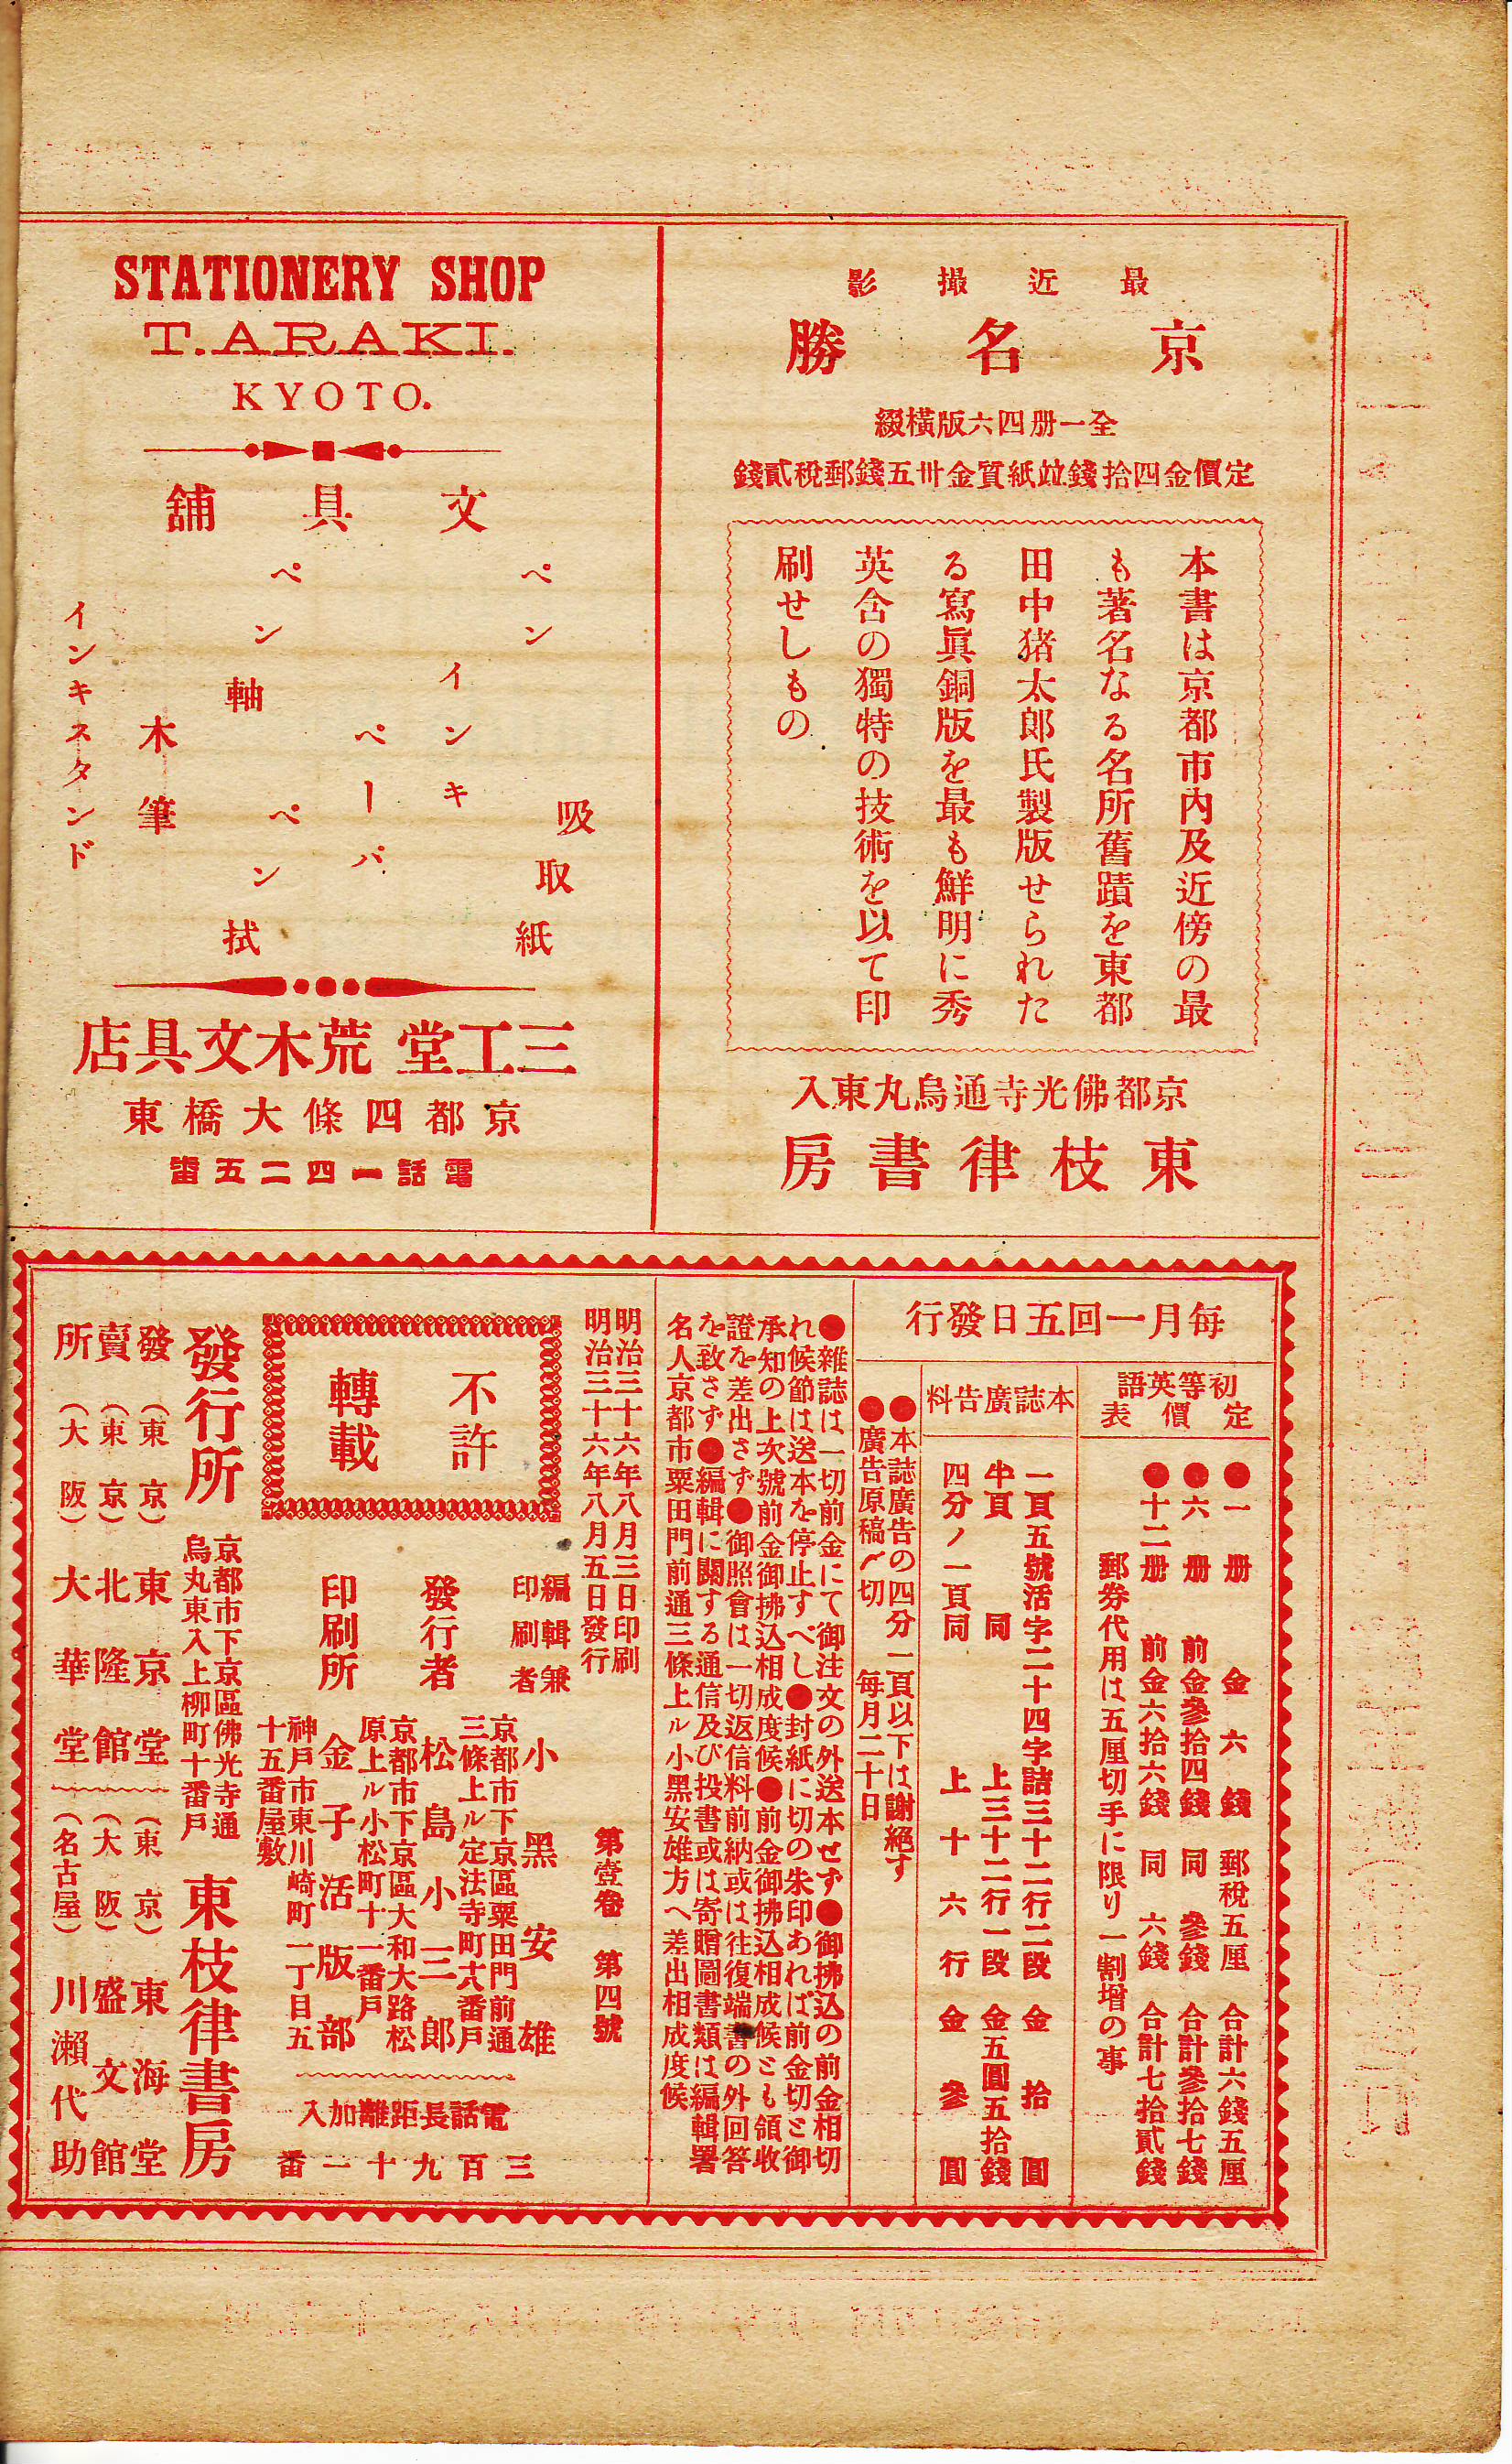 最近撮影
京名勝
全一册四六版橫綴
定價金四拾錢竝紙質金卅五錢郵稅貳錢
本書は京都市内及近傍の最
も著名なる名所舊蹟を東都
田中猪太郎氏製版せられた
る寫眞銅版を最も鮮明に秀
英舍の獨特の技術を以て印
刷せしもの
京都佛光寺通烏丸東入
東枝律書房
STATIONERY SHOP
T. ARAKI.
KYOTO.
文具舖
吸取紙
ペン
インキ
ペーパ
ペン軸
ペン拭
木筆
インキスタンド
三工堂 荒木文具店
京都四條大橋東
電話一四二五番
每月一回五日發行
初等英語
定價表
●一册 金六錢 郵稅五厘 合計六錢五厘
●六册 前金參拾四錢 同 參錢 合計參拾七錢
●十二册 前金六拾六錢 同 六錢 合計七拾貳錢
郵券代用は五厘切手に限り一割增の事
本誌廣告料
一頁五號活字二十四字詰三十二行二段 金拾圓
半頁 同 上三十二行一段 金五圓五拾錢
四分ノ一頁同 上十六行 金參圓
●本誌廣告の四分一頁以下は謝絕す
●廣告原稿〆切 每月二十日
●雜誌は一切前金にて御注文の外送本せず●御拂込の前金相切
れ候節は送本を停止すべし●封紙に切の朱印あれば前金切と御
承知の上次號前金御拂込相成度候●前金御拂込相成候とも領收
證を差出さず●御照會は一切返信料前納或は往復端書の外回答
を致さず●編輯に關する通信及び投書或は寄贈圖書類は編輯署
名人京都市粟田門前通三條上ル小黑安雄方へ差出相成度候
明治三十六年八月三日印刷
明治三十六年八月五日發行
第壹卷 第四號
不許
轉載
編輯兼
印刷者
京都市下京區粟田門前通
三條上ル定法寺町十八番戶
小黑安雄
發行者
京都市下京區大和大路松
原上ル小松町十一番戶
松島小三郎
印刷所
神戶市東川崎町一丁目五
十五番屋敷
金子活版部
電話長距離加入
三百九十一番
發行所
京都市下京區佛光寺通
烏丸東入上柳町十番戶
東枝律書房
發賣所
(東京) 東京堂
(東京) 北隆館
(大阪) 大華堂
(東京) 東海堂
(大阪) 盛文館
(名古屋) 川瀨代助